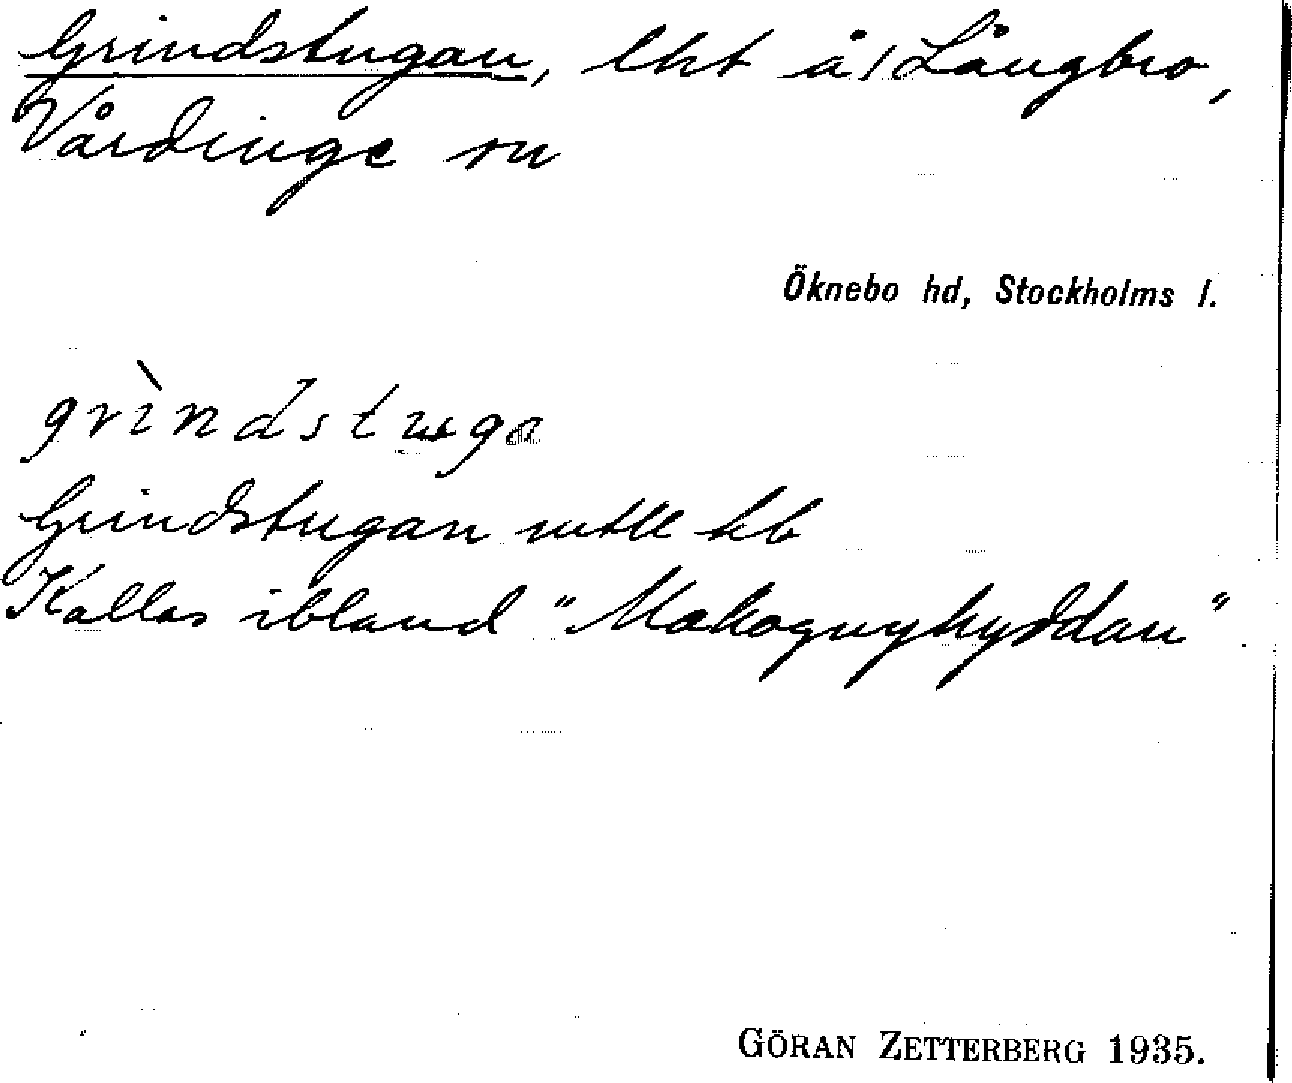 Grindstugan, lht å/Långbro,
Vårdinge sn
Öknebo hd, Stockholms l.
grìndstuga
Grindstugan kb
Kallas ibland "Mahognyhyddan"
GÖRAN ZETTERBERG 1935.